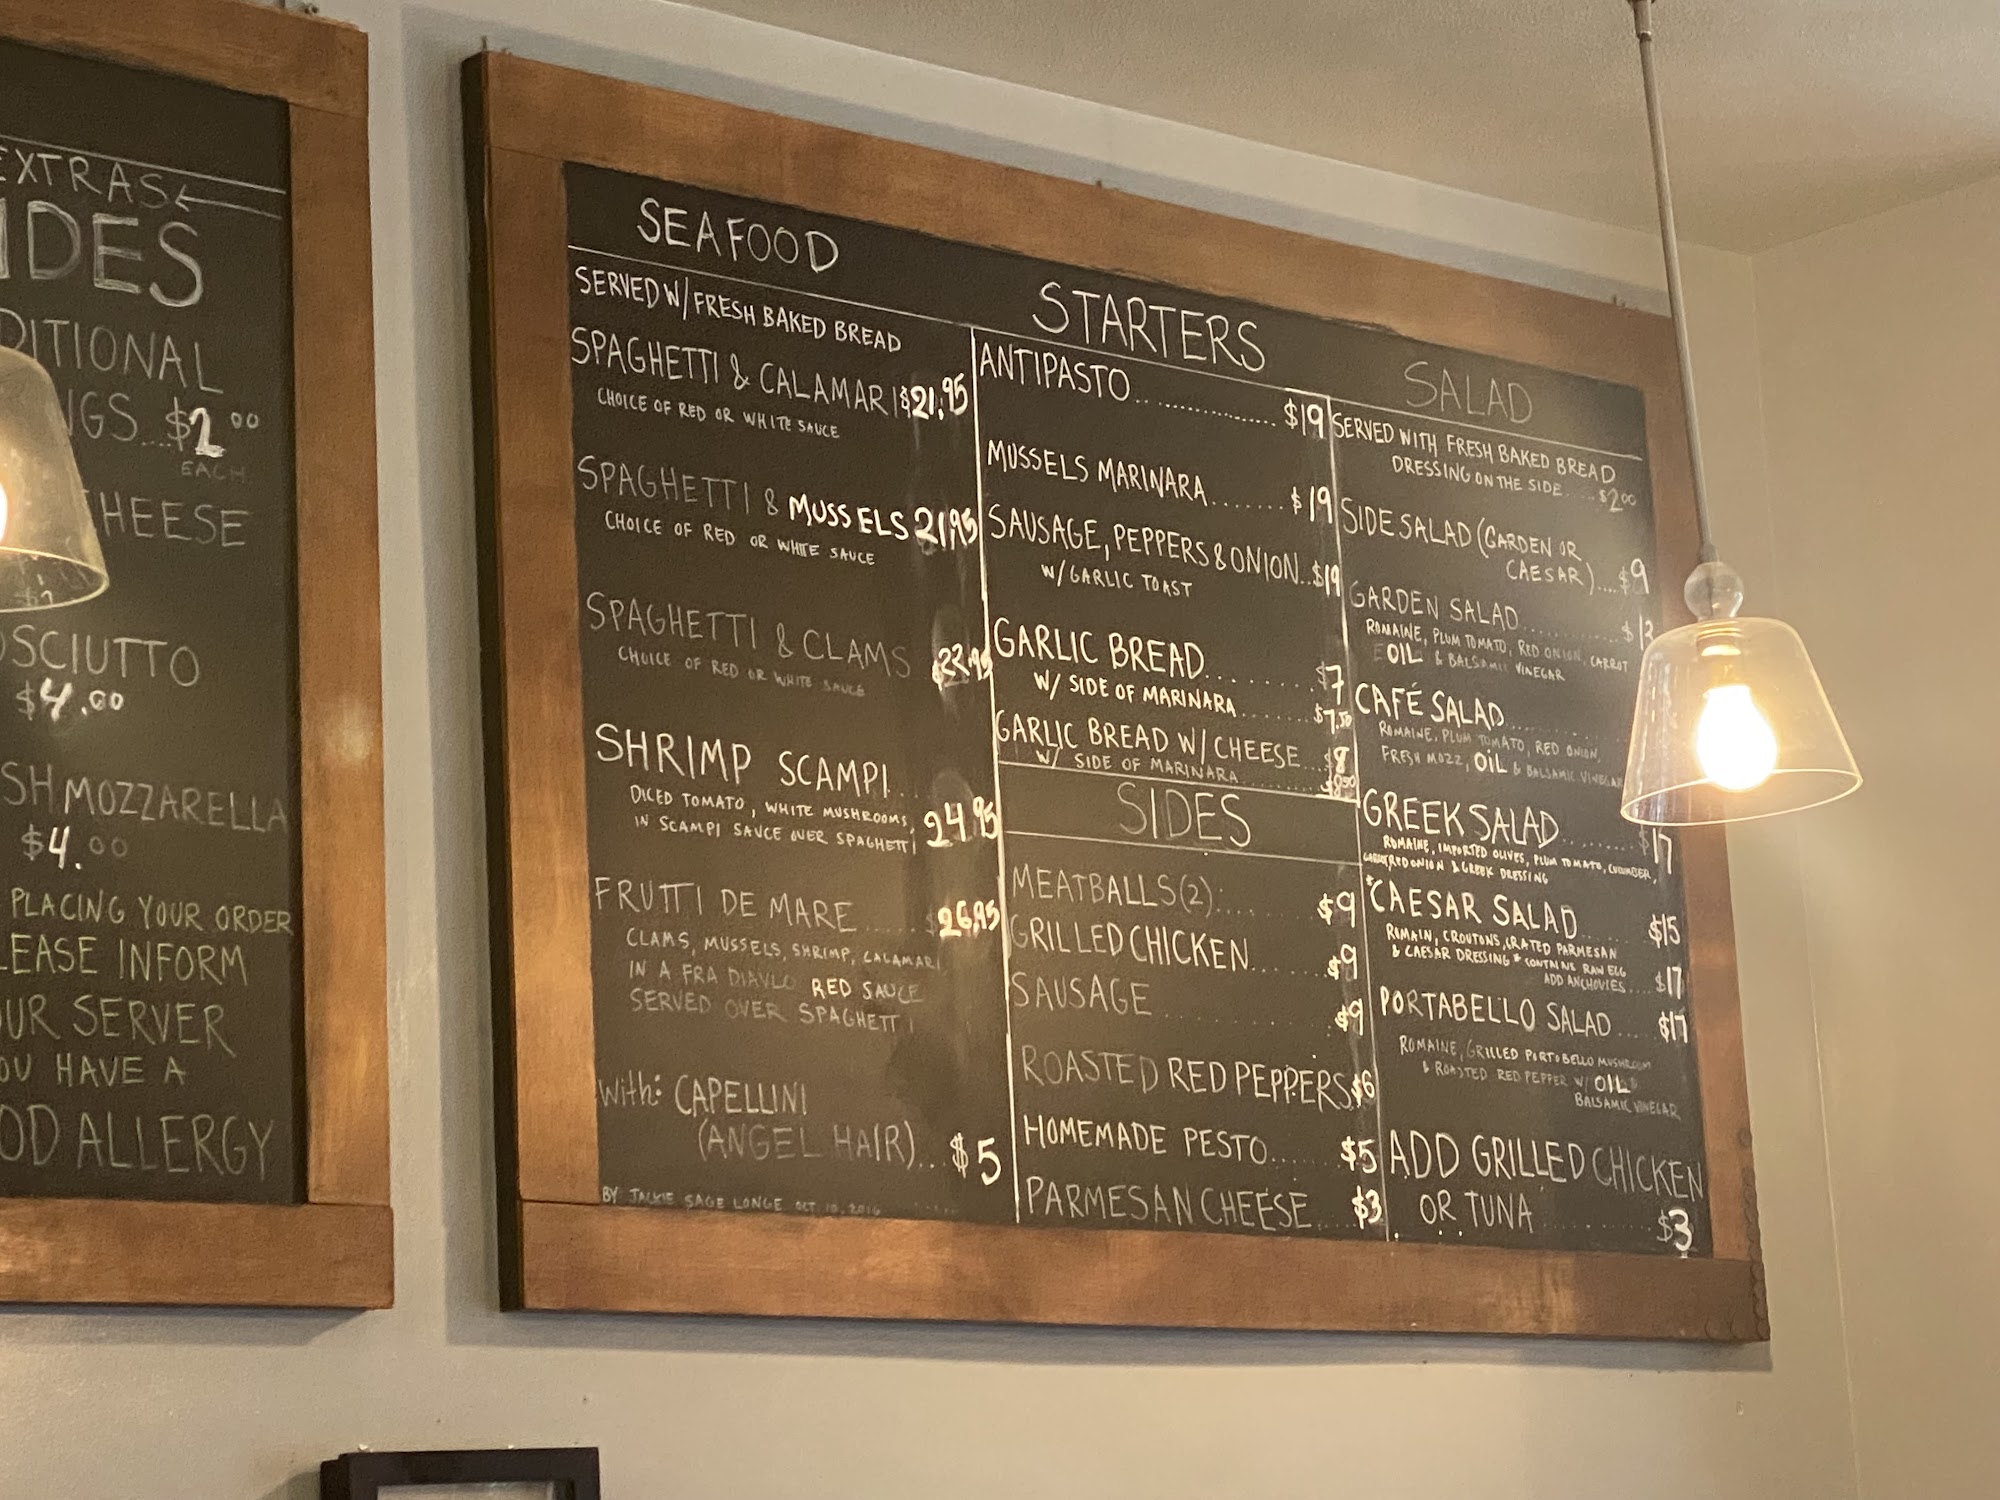 EXTRAS
IDES
DITIONAL
NGS...$2.00
EACH
CHEESE
OSCIUTTO
$4.00
SH MOZZARELLA
$4.00
PLACING YOUR ORDER
LEASE INFORM
OUR SERVER
OU HAVE A
OD ALLERGY
SEAFOOD
SERVED W/ FRESH BAKED BREAD
SPAGHETTI & CALAMARI $21.95
CHOICE OF RED OR WHITE SAUCE
SPAGHETTI & MUSSELS 21.95
CHOICE OF RED OR WHITE SAUCE
SPAGHETTI & CLAMS $22.95
CHOICE OF RED OR WHITE SAUCE
SHRIMP SCAMPI
DICED TOMATO, WHITE MUSHROOMS, 24.95
IN SCAMPI SAUCE OVER SPAGHETTI
FRUTTI DE MARE..... $26.95
CLAMS, MUSSELS, SHRIMP, CALAMARI
IN A FRA DIAVLO RED SAUCE
SERVED OVER SPAGHETTI
With: CAPELLINI
(ANGEL HAIR)... $5
BY: JACKIE SAGE LONGE OCT 10, 2016
STARTERS
ANTIPASTO................ $19
MUSSELS MARINARA........ $19
SAUSAGE, PEPPERS & ONION...$19
W/ GARLIC TOAST
GARLIC BREAD......... $7
W/ SIDE OF MARINARA....... $7.50
GARLIC BREAD W/ CHEESE... $8
W/ SIDE OF MARINARA......... $8.50
SIDES
MEATBALLS (2)....... $9
GRILLED CHICKEN..... $9
SAUSAGE.......... $9
ROASTED RED PEPPERS $6
HOMEMADE PESTO..... $5
PARMESAN CHEESE... $3
SALAD
SERVED WITH FRESH BAKED BREAD
DRESSING ON THE SIDE.... $2.00
SIDE SALAD (GARDEN OR
CAESAR)....$9
GARDEN SALAD......... $
ROMAINE, PLUM TOMATO, RED ONION, CARROT
OIL & BALSAMIC VINEGAR
CAFÉ SALAD.........
ROMAINE, PLUM TOMATO, RED ONION,
FRESH MOZZ, OIL & BALSAMIC VINEGAR
GREEK SALAD........ $17
ROMAINE, IMPORTED OLIVES, PLUM TOMATO, CUCUMBER,
CARROT RED ONION & GREEK DRESSING
*CAESAR SALAD....... $15
ROMAIN, CROUTONS, GRATED PARMESAN
& CAESAR DRESSING * CONTAINS RAW EGG
ADD ANCHOVIES.... $17
PORTABELLO SALAD.... $17
ROMAINE, GRILLED PORTOBELLO MUSHROOM
& ROASTED RED PEPPER W/ OIL &
BALSAMIC VINEGAR
ADD GRILLED CHICKEN
OR TUNA......... $3